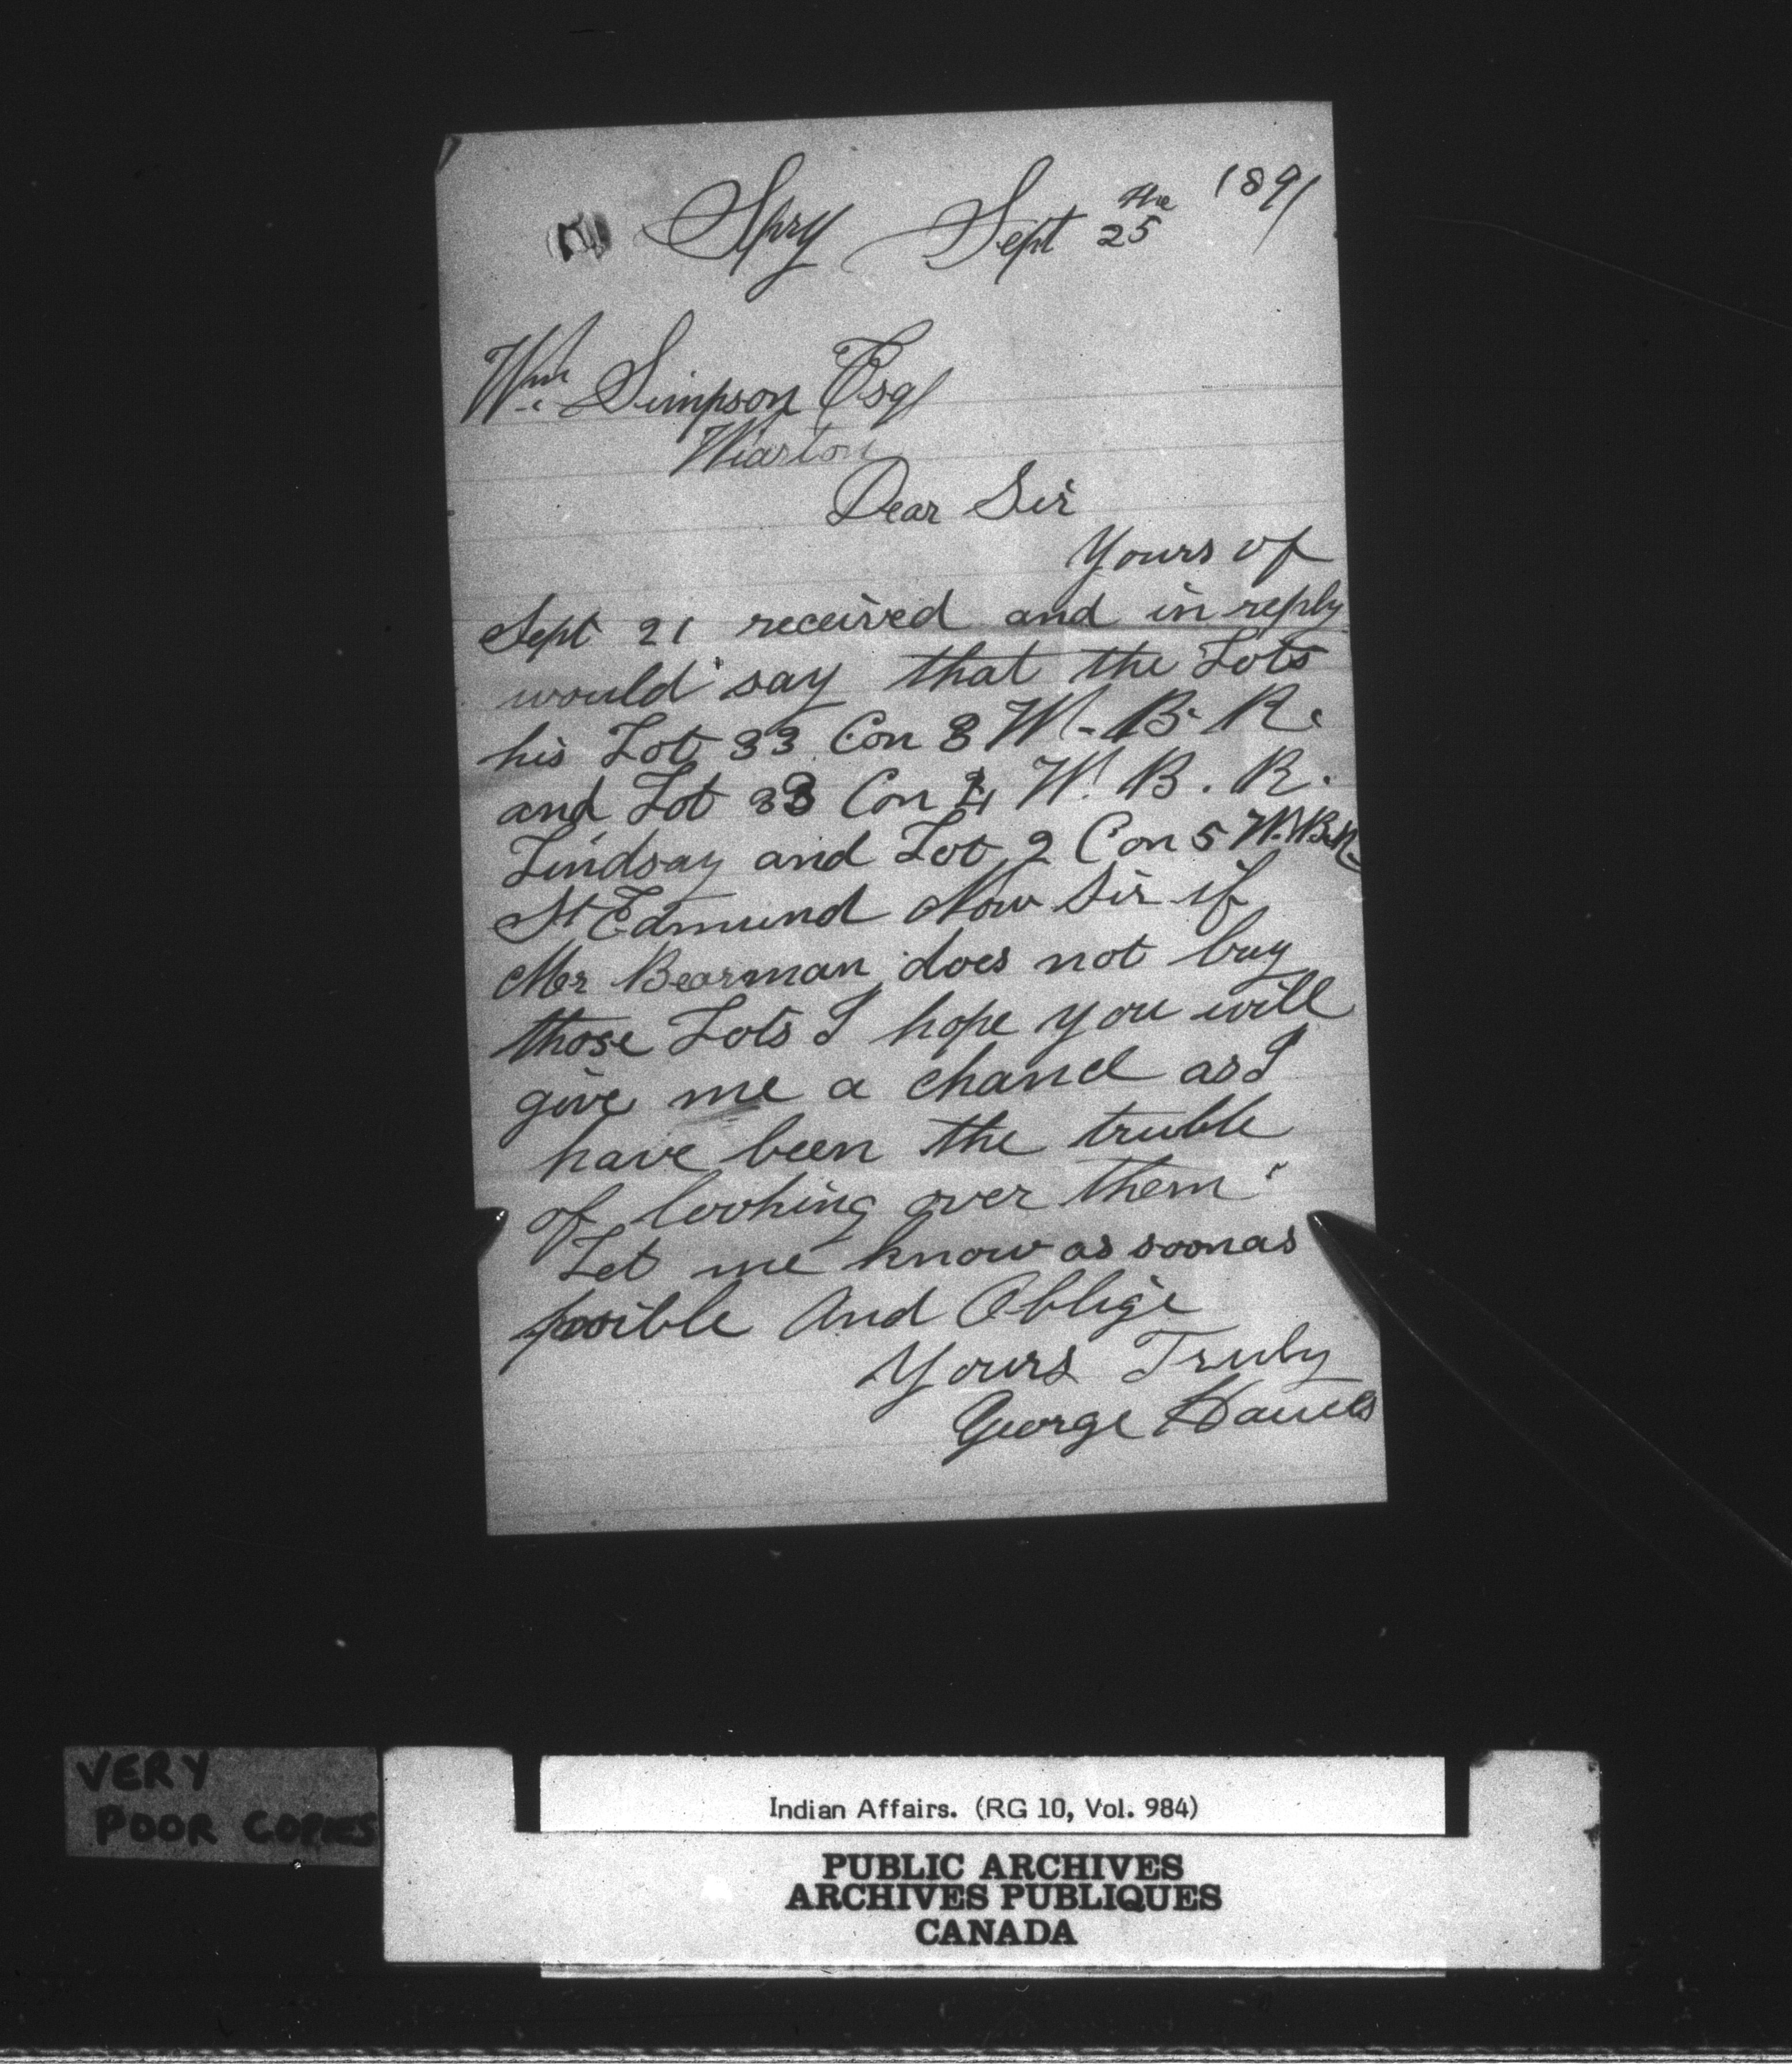 Spry Sept 25 the 1891
Wm Simpson Esq
Wiarton
Dear Sir
Yours of
Sept 21 received and in reply
would say that the Lots
his Lot 33 Con 8 W. B. R.
and Lot 33 Con 4 W. B. R.
Lindsay and Lot 2 Con 5 W.B.R
St Edmund Now Sir if
Mr Bearman does not buy
those Lots I hope you will
give me a chance as I
have been the truble
of looking over them
Let me know as soon as
posible And Oblige
Yours Truly
George Daniels
VERY
POOR COPIES
Indian Affairs. (RG 10, Vol. 984)
PUBLIC ARCHIVES
ARCHIVES PUBLIQUES
CANADA